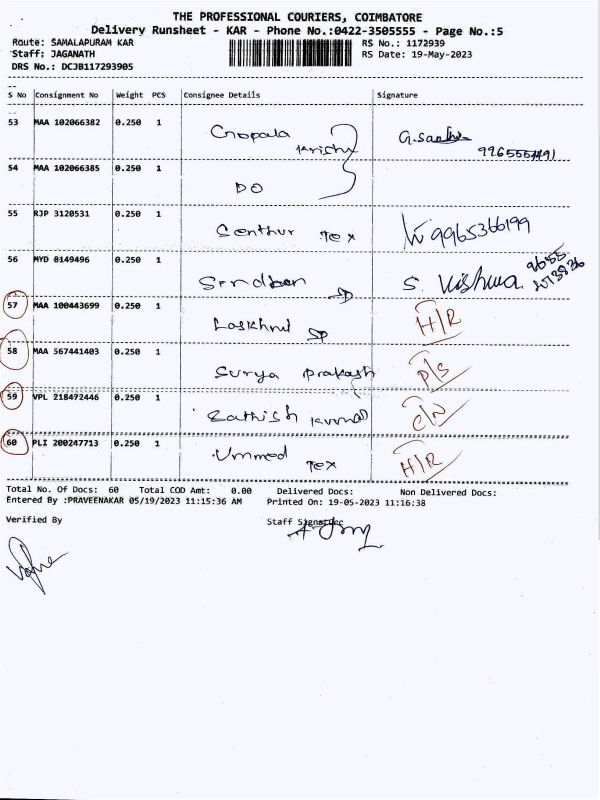 THE PROFESSIONAL COURIERS, COIMBATORE
Delivery Runsheet - KAR - Phone No.:0422-3505555 - Page No.:5
Route: SAMALAPURAM KAR RS No.: 1172939
Staff: JAGANATH RS Date: 19-May-2023
DRS No.: DCJB117293905
S No Consignment No Weight PCS Consignee Details Signature
53 MAA 102066382 0.250 1 Gopala Krishna
54 MAA 102066385 0.250 1 DO
55 RJP 3120531 0.250 1 Senthur Tex 9965366199
56 MYD 8149496 0.250 1 SP S. Vishwa
57 MAA 100443699 0.250 1 SP H/R
58 MAA 567441403 0.250 1 Surya Prakash P/S
59 VPL 218472446 0.250 1 Sathish Kumar C/N
60 PLI 200247713 0.250 1 Ummed Tex H/R
Total No. Of Docs: 60 Total COD Amt: 0.00 Delivered Docs: Non Delivered Docs:
Entered By :PRAVEENAKAR 05/19/2023 11:15:36 AM Printed On: 19-05-2023 11:16:38
Verified By Staff Signature